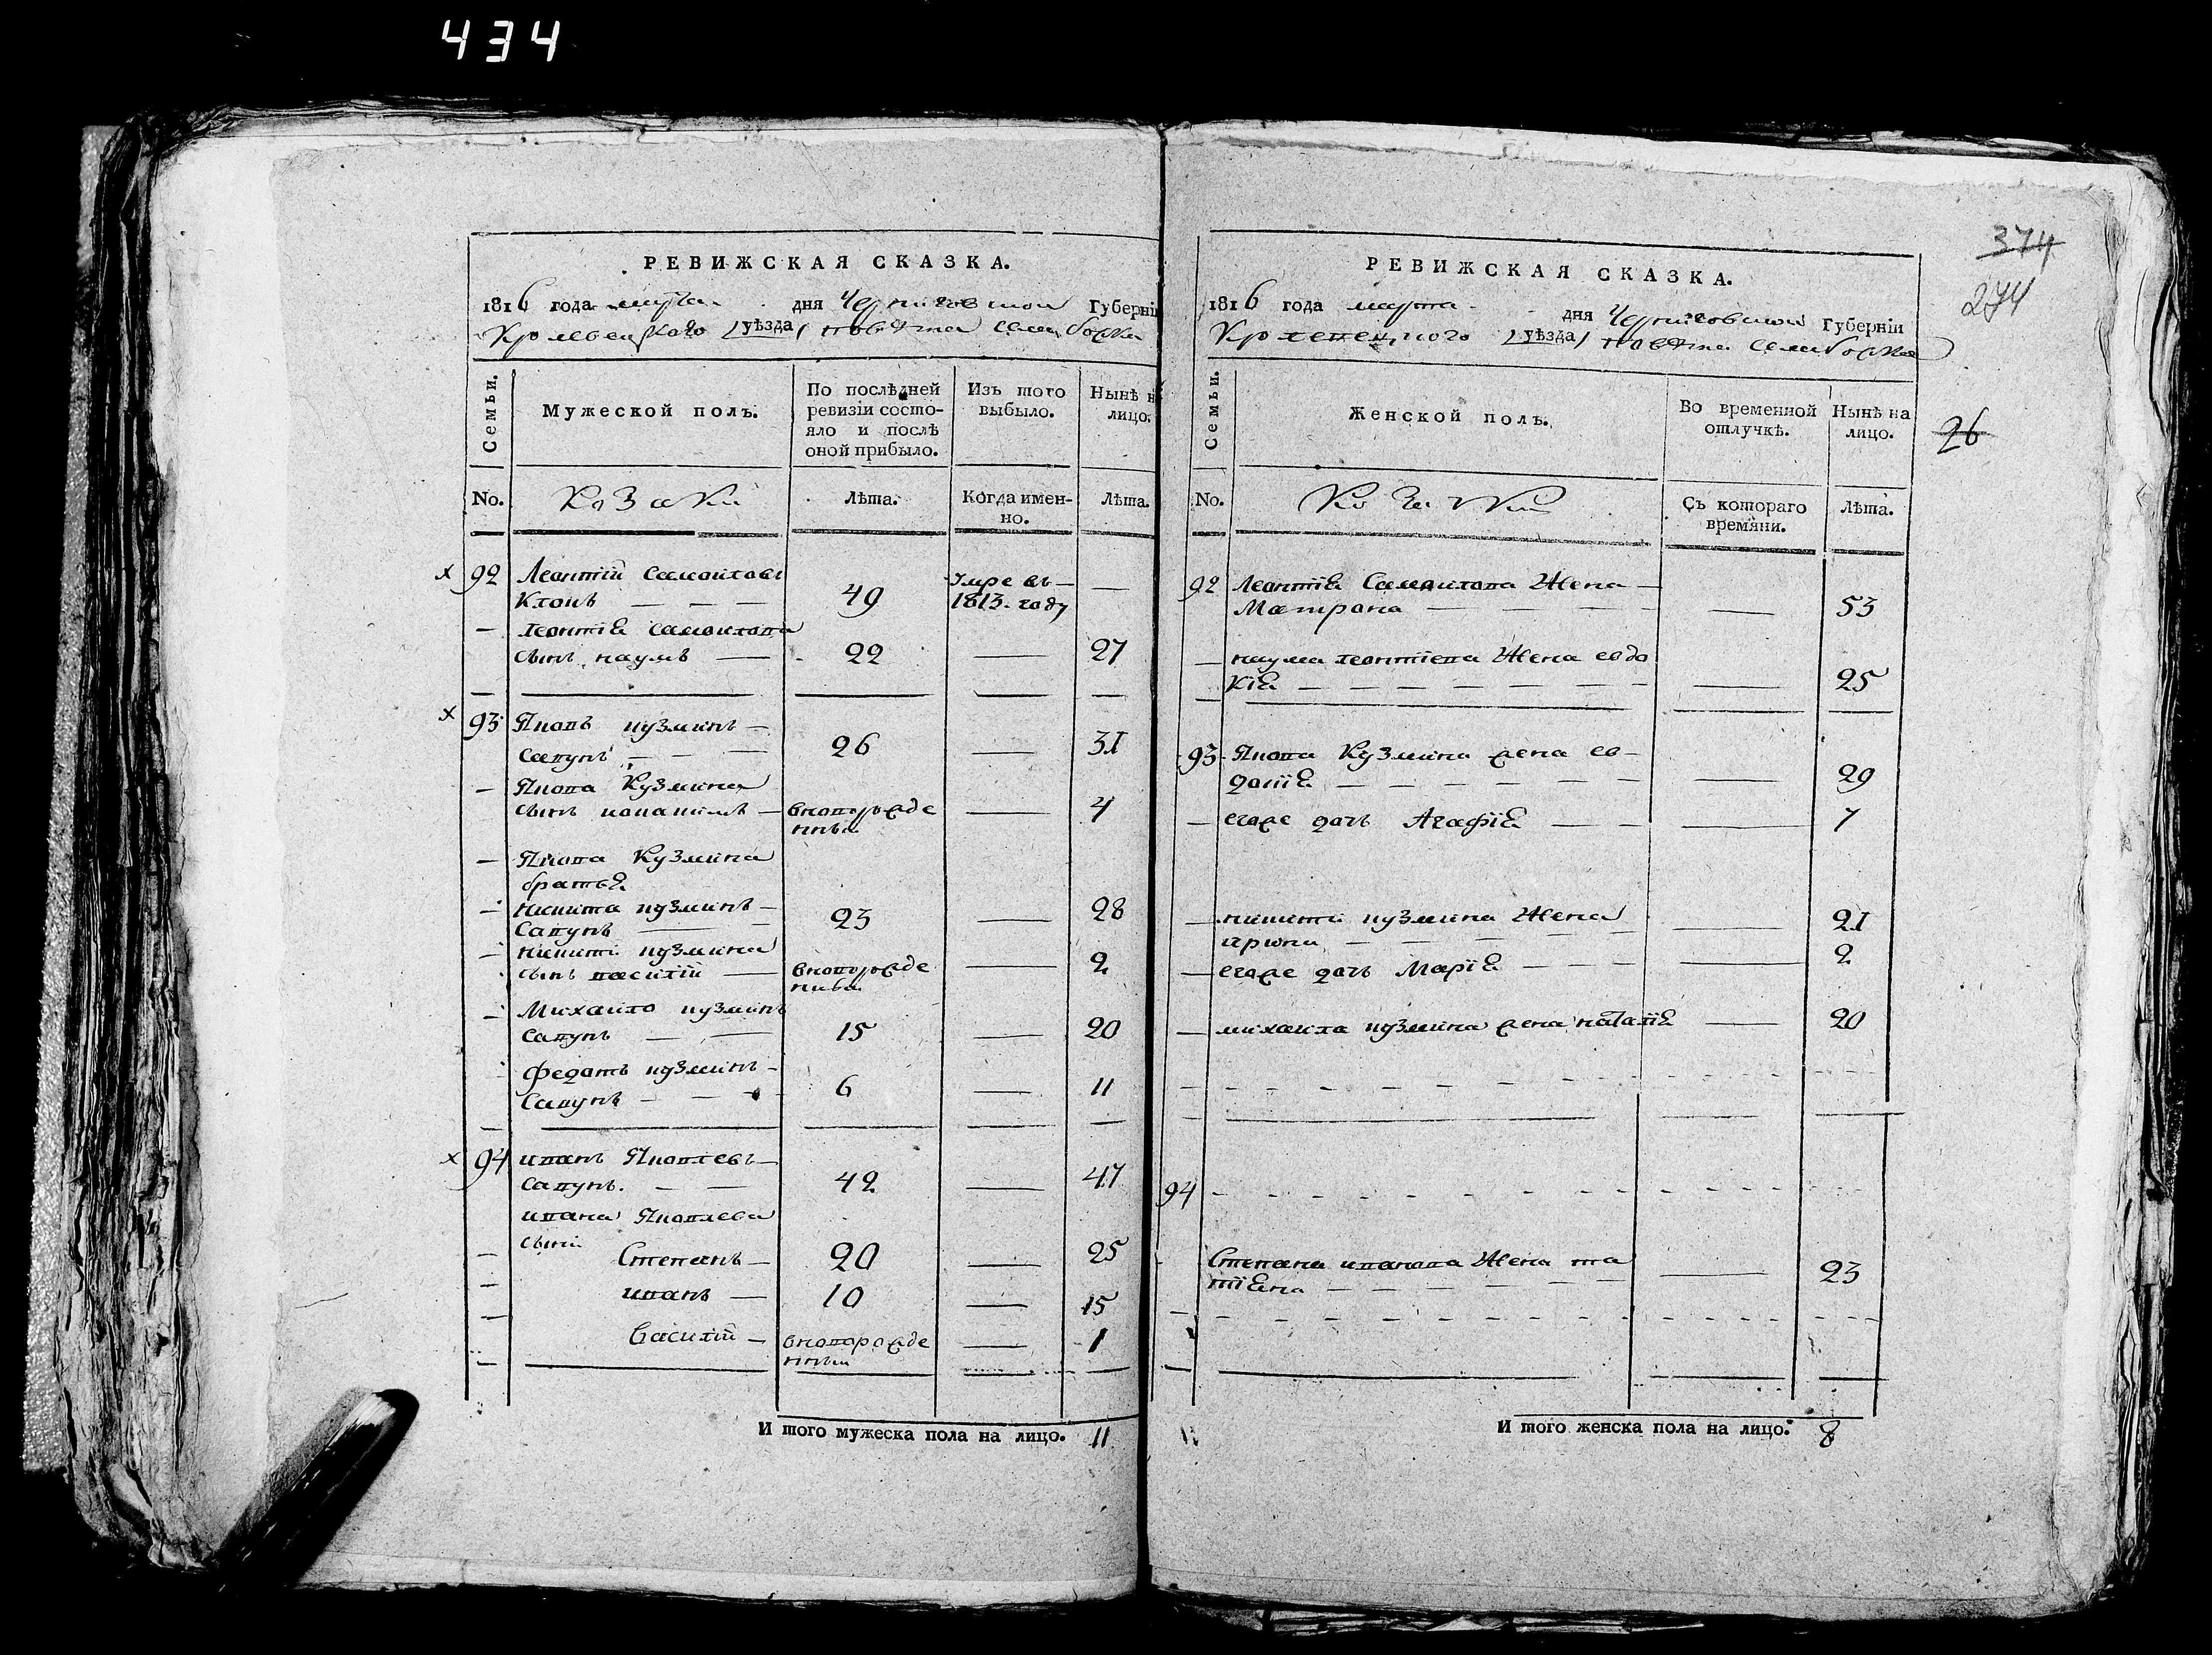 434
РЕВИЖСКАЯ СКАЗКА.
1816 года марта дня Черниговской Губерніи
Кролевецкаго /уѣзда/ повѣта села
Семьи.
Мужеской полъ.
По послѣдней ревизіи состояло и послѣ оной прибыло.
Изъ того выбыло.
Нынѣ на лицо.
No.
Козаки
Лѣта.
Когда именно.
Лѣта.
х 92 Леонтій Самойловъ
Клонъ — — — 49 Умре въ 1813. году —
— Леонтія Самойлова
сынъ наумъ — 22 — 27
х 93 Яковъ кузминъ —
сапунъ — — 26 — 31
— Якова Кузмина
сынъ — вноворожде
нный — 4
— Якова Кузмина
братья
— никита кузминъ —
Сапунъ — 23 — 28
— никити кузмина
сынъ василій — вноворожде
нный — 2
— Михаило кузминъ
сапунъ — — 15 — 20
федотъ кузминъ —
Сапунъ — — 6 — 11
х 94 иванъ Яковлевъ —
сапунъ. — — 42 — 47
ивана Яковлева
сыни
— Степанъ — 20 — 25
— иванъ — 10 — 15
— Василій — вноворожде
нный — 1
И того мужеска пола на лицо. 11
РЕВИЖСКАЯ СКАЗКА.
1816 года марта дня Черниговской Губерніи
Кролевецкого /уѣзда/ повѣта села
374
274
26
Семьи.
Женской полъ.
Во временной отлучкѣ.
Нынѣ на лицо.
No.
Козачки
Съ котораго времяни.
Лѣта.
92 Леонтія Самоилова Жена —
Матрона — — — — 53
— наума леонтіева Жена евдо
кія — — — — — 25
93 Якова Кузмина жена ев-
докія — — — — — 29
— егоже дочь Агафія — — — 7
— никити кузмина Жена
ирина — — — — 21
— егоже дочь Марія — — — 2
— михаила кузмина жена наталія — 20
94
Степана иванова Жена та
тіяна — — — — 23
И того женска пола на лицо. 8